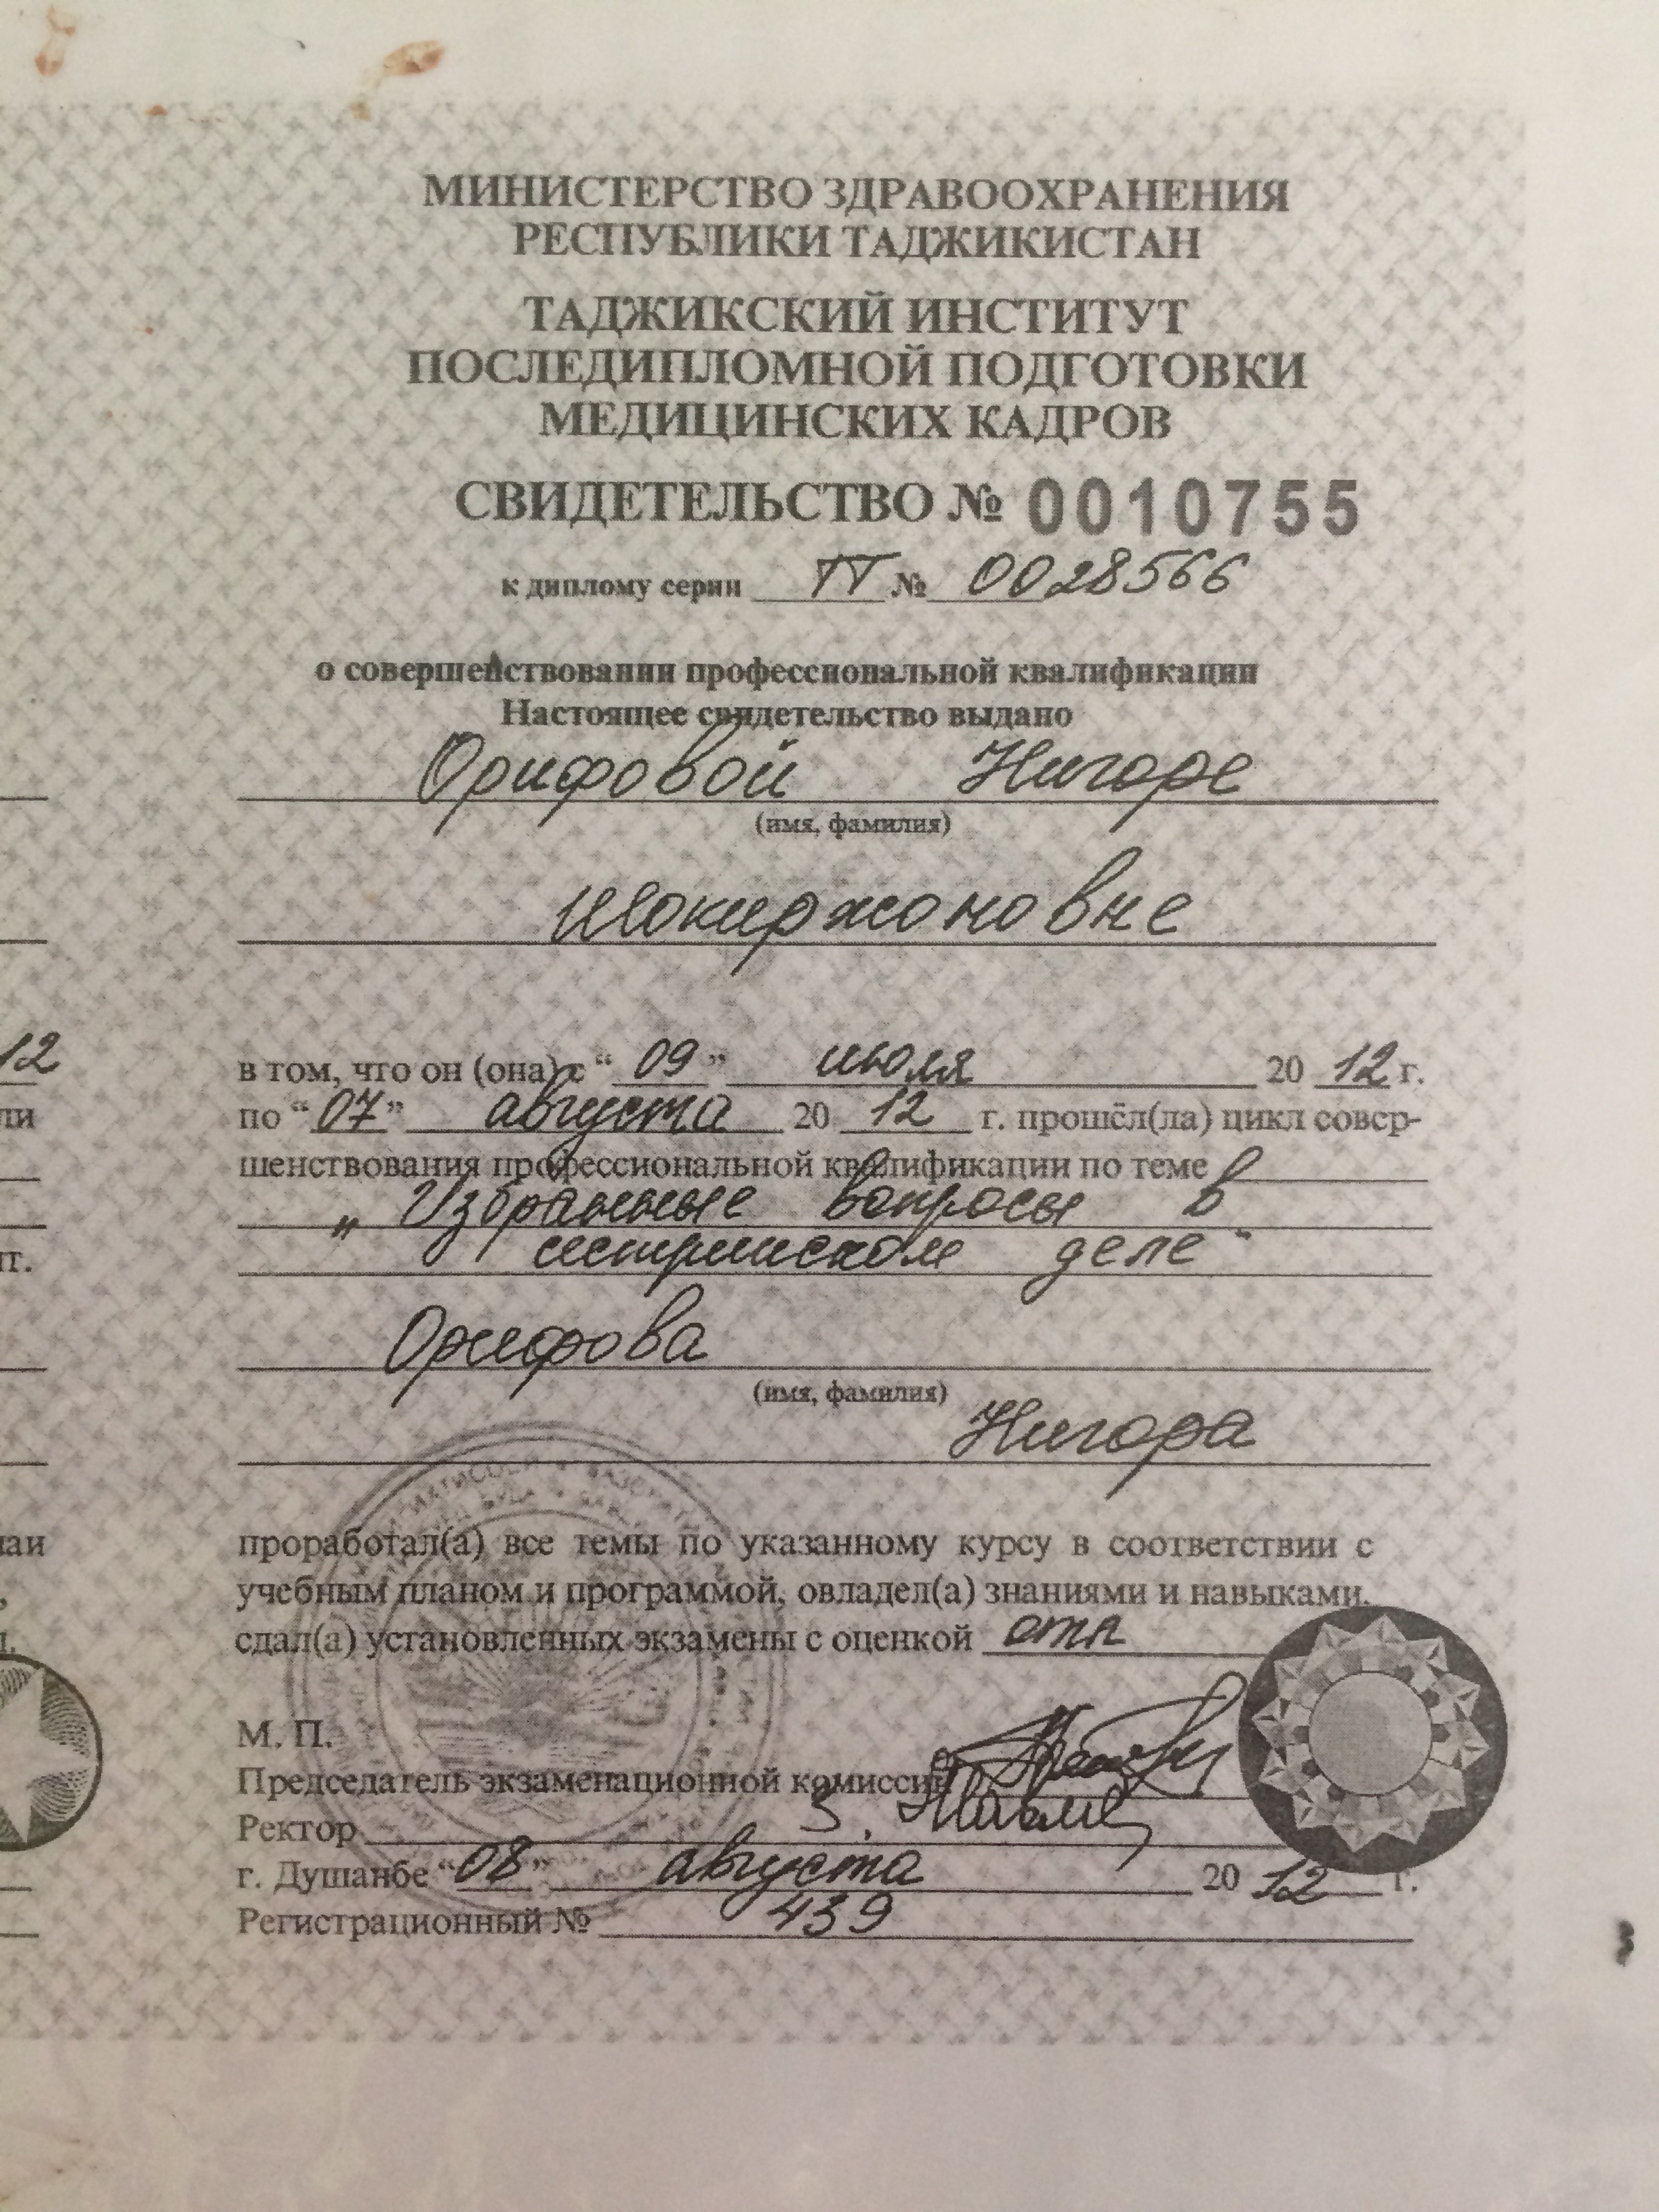 МИНИСТЕРСТВО ЗДРАВООХРАНЕНИЯ
РЕСПУБЛИКИ ТАДЖИКИСТАН
ТАДЖИКСКИЙ ИНСТИТУТ
ПОСЛЕДИПЛОМНОЙ ПОДГОТОВКИ
МЕДИЦИНСКИХ КАДРОВ
СВИДЕТЕЛЬСТВО № 0010755
к диплому серии ТТ № 0028566
о совершенствовании профессиональной квалификации
Настоящее свидетельство выдано
Орифовой Нигоре
(имя, фамилия)
Шокиржоновне
12
в том, что он (она) с “09” июля 2012 г.
ли
по “07” августа 2012 г. прошёл(ла) цикл совер-
шенствования профессиональной квалификации по теме
„Избранные вопросы в
сестринском деле“
Орифова
(имя, фамилия)
Нигора
проработал(а) все темы по указанному курсу в соответствии с
учебным планом и программой, овладел(а) знаниями и навыками,
сдал(а) установленных экзамены с оценкой отл
М. П.
Председатель экзаменационной комиссии
Ректор
г. Душанбе “08” августа 2012 г.
Регистрационный № 439